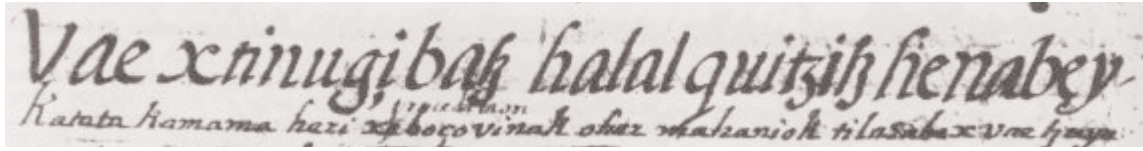 Vae xtinuꜯibah halal quitzih he nabey
katata kamama heri xeboço vinak oher mahaniok tilaꜫabex vae huyu